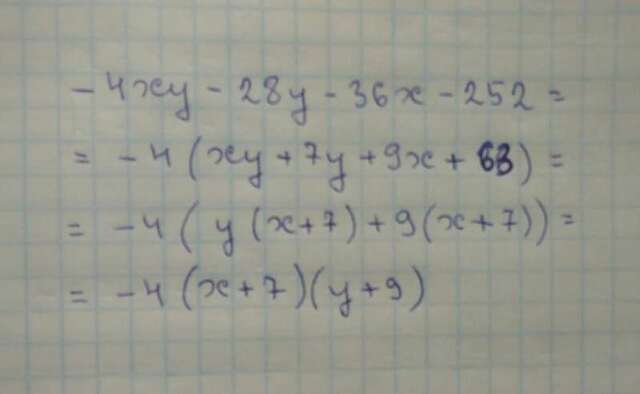 -4xy - 28y - 36x - 252 =
= -4(xy + 7y + 9x + 63) =
= -4(y(x+7) + 9(x+7)) =
= -4(x+7)(y+9)